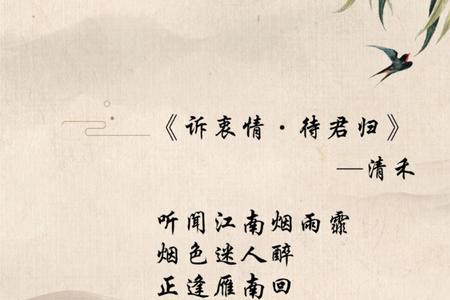 《诉衷情·待君归》
—清禾
听闻江南烟雨霏
烟色迷人醉
正逢雁南回